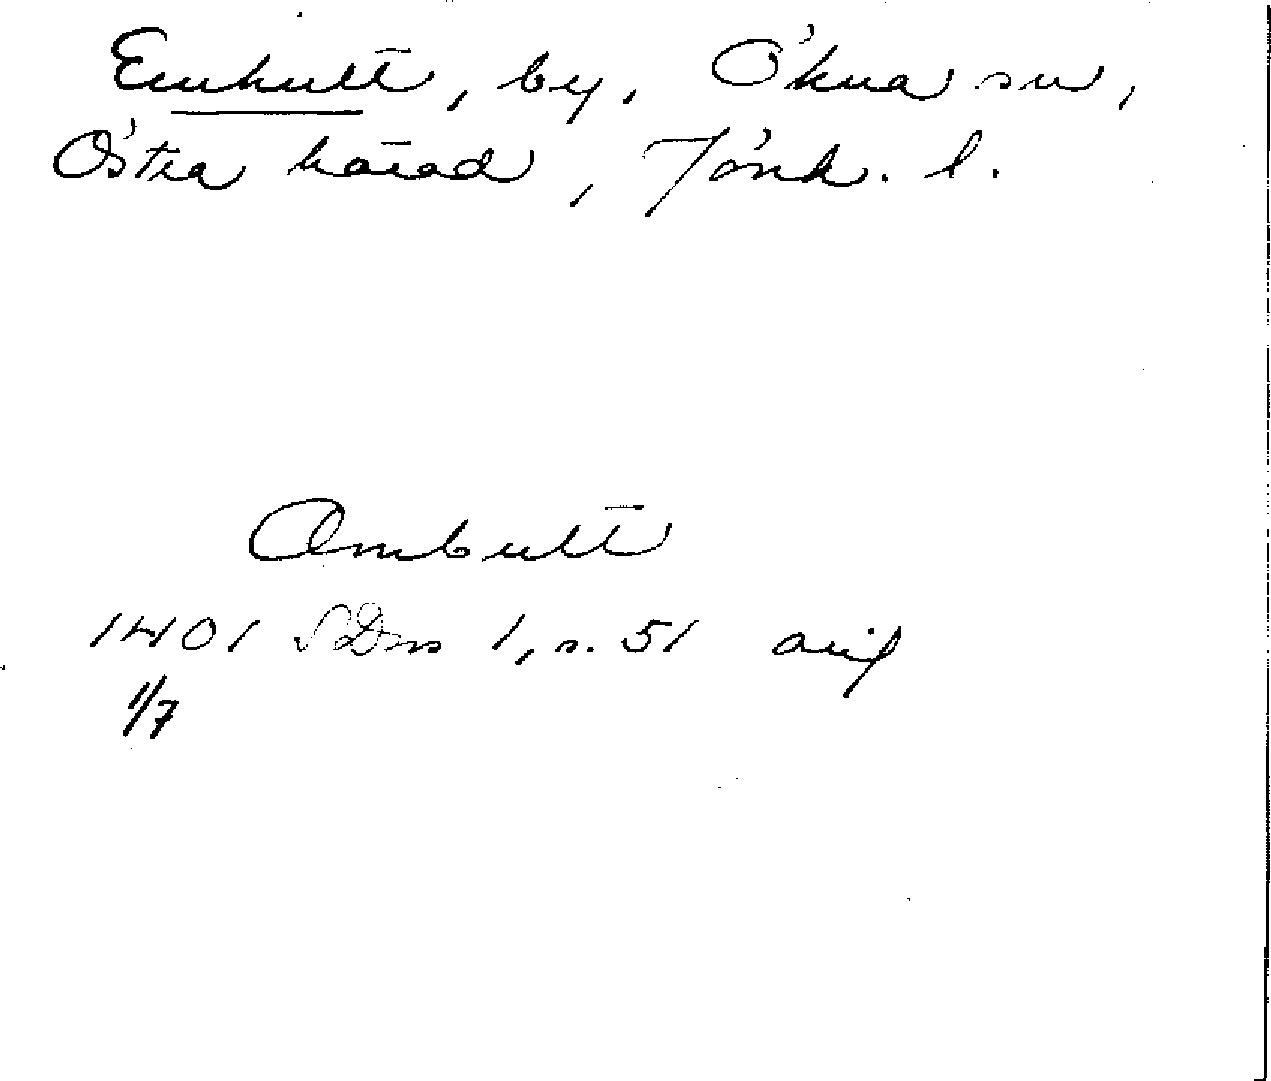 Emhult, by, Ökna sn,
Östra härad, Jönk. l.
Ombult
1401 SDns 1, s. 51 avif
1/7